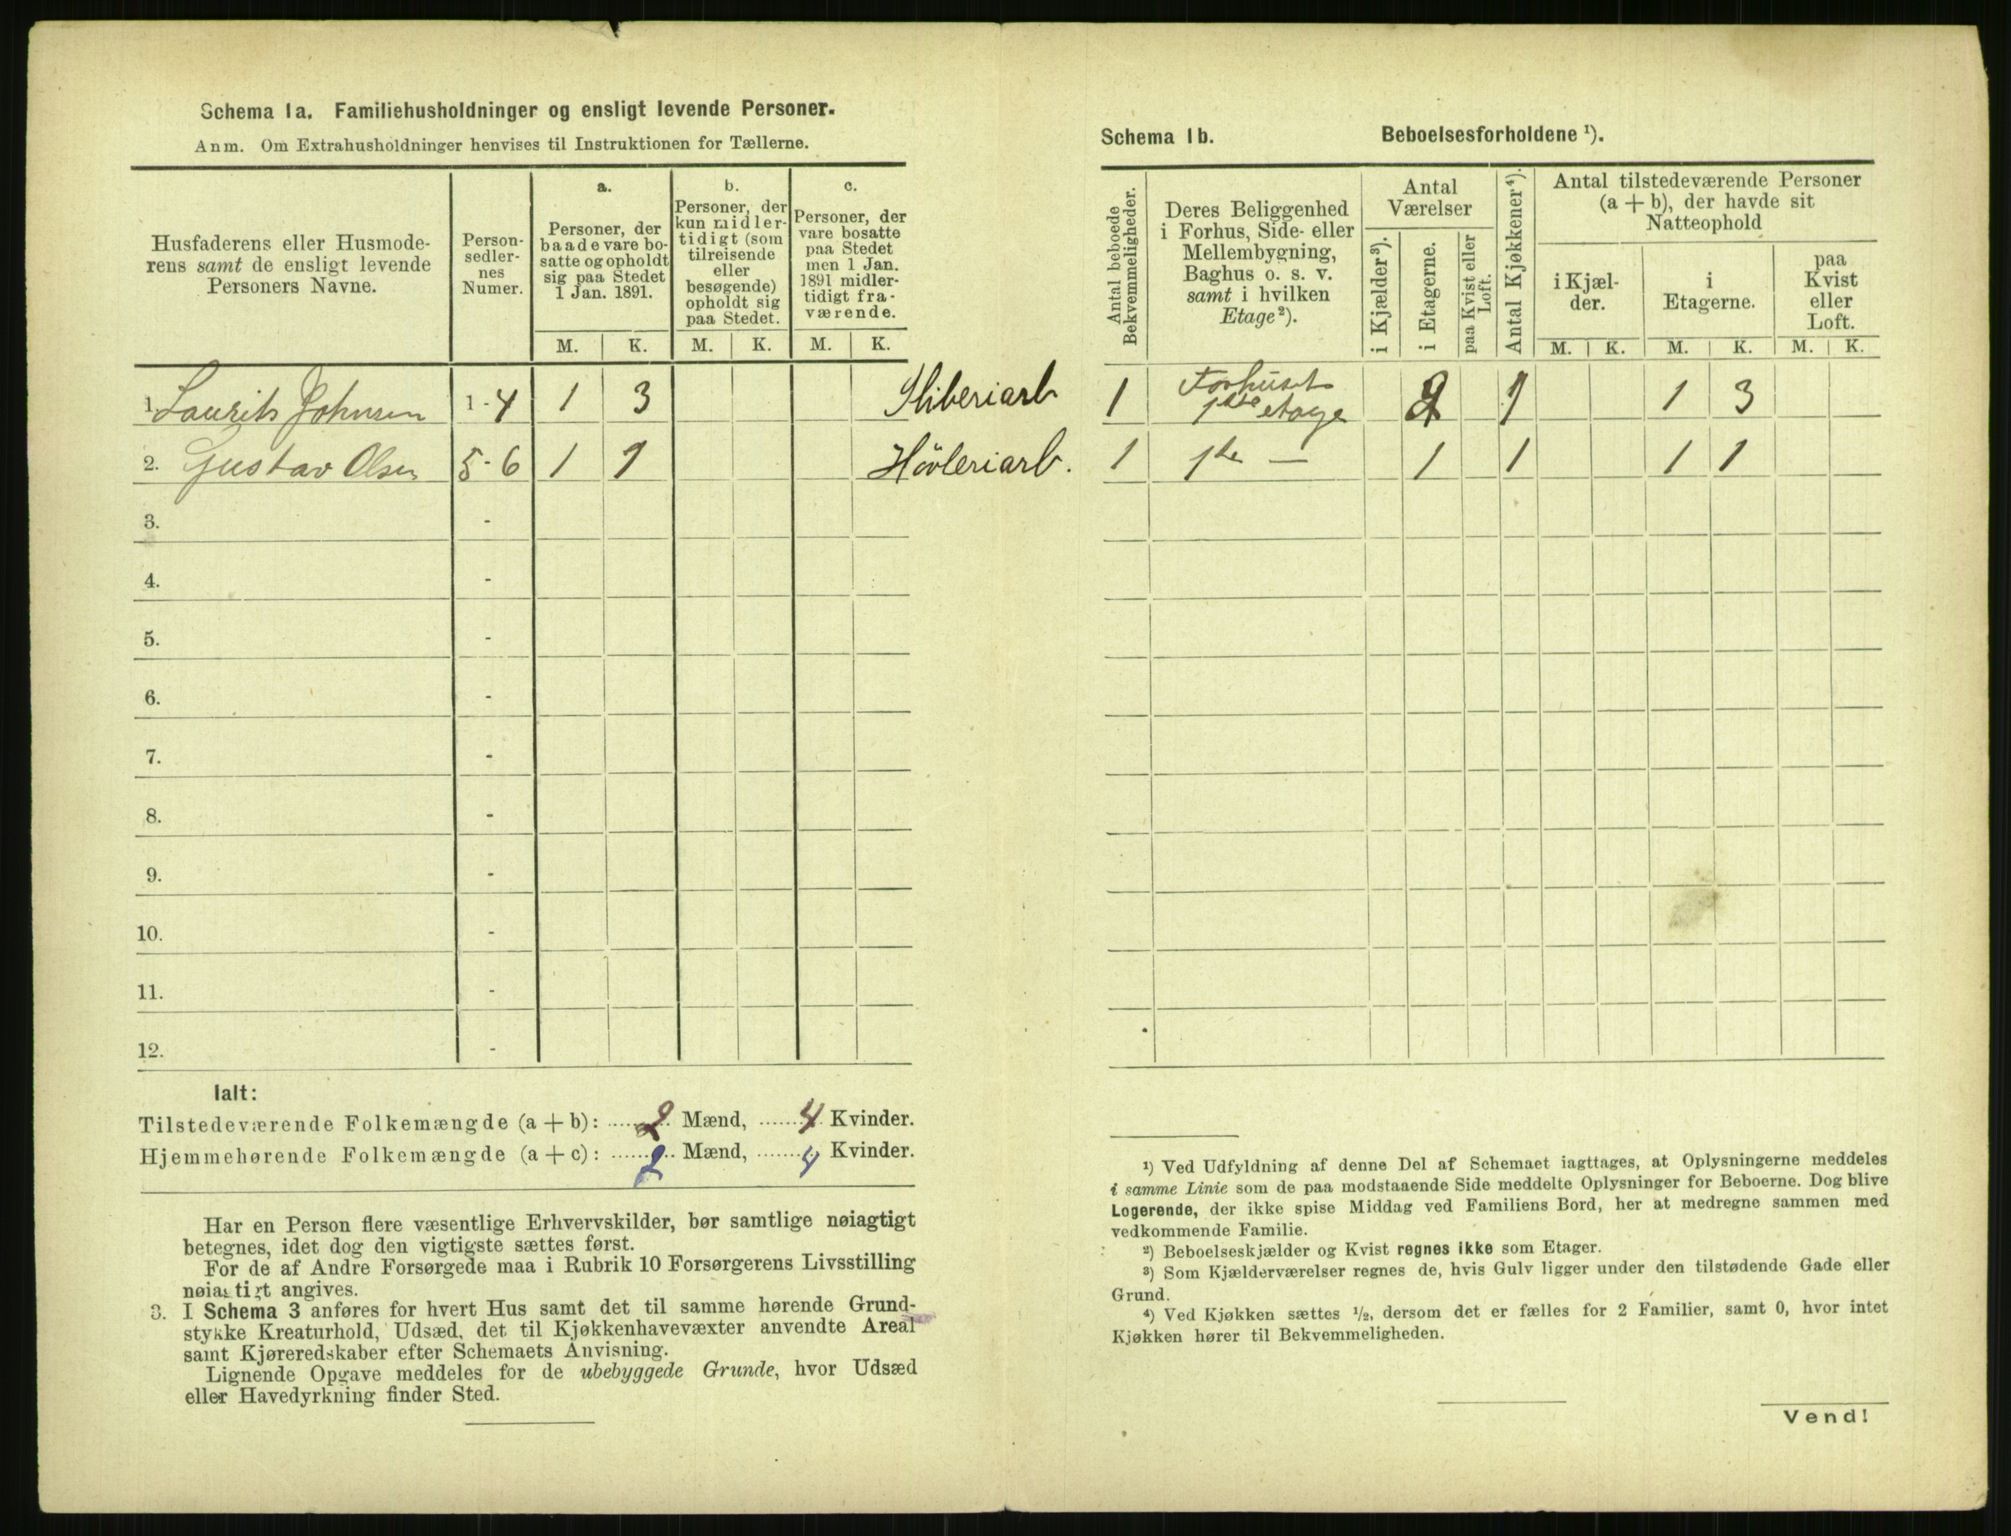 Schema 1a. Familiehusholdninger og ensligt levende Personer.
Anm. Om Extrahusholdninger henvises til Instruktionen for Tællerne.
Husfaderens eller Husmode-
rens samt de ensligt levende
Personers Navne.
Person-
sedler-
nes
Numer.
a.
Personer, der
baade vare bo-
satte og opholdt
sig paa Stedet
1 Jan. 1891.
b.
Personer, der
kun midler-
tidigt (som
tilreisende
eller
besøgende)
opholdt sig
paa Stedet.
c.
Personer, der
vare bosatte
paa Stedet
men 1 Jan.
1891 midler-
tidigt fra-
værende.
M. K. M. K. M. K.
1. Laurits Johnsen 1-4 1 3 Sliberiarb
2. Gustav Olsen 5-6 1 1 Høvleriarb.
3. -
4. -
5. -
6. -
7. -
8. -
9. -
10. -
11. -
12. -
Ialt:
Tilstedeværende Folkemængde (a + b): 2 Mænd, 4 Kvinder.
Hjemmehørende Folkemængde (a + c): 2 Mænd, 4 Kvinder.
Har en Person flere væsentlige Erhvervskilder, bør samtlige nøiagtigt
betegnes, idet dog den vigtigste sættes først.
For de af Andre Forsørgede maa i Rubrik 10 Forsørgerens Livsstilling
nøiagtigt angives.
3. I Schema 3 anføres for hvert Hus samt det til samme hørende Grund-
stykke Kreaturhold, Udsæd, det til Kjøkkenhavevæxter anvendte Areal
samt Kjøreredskaber efter Schemaets Anvisning.
Lignende Opgave meddeles for de ubebyggede Grunde, hvor Udsæd
eller Havedyrkning finder Sted.
Schema 1b. Beboelsesforholdene ¹).
Antal beboede
Bekvemmeligheder.
Deres Beliggenhed
i Forhus, Side- eller
Mellembygning,
Baghus o. s. v.
samt i hvilken
Etage²).
Antal
Værelser
i Kjælder³).
i Etagerne.
paa Kvist eller
Loft.
Antal Kjøkkener⁴).
Antal tilstedeværende Personer
(a + b), der havde sit
Natteophold
i Kjæl-
der.
i
Etagerne.
paa
Kvist
eller
Loft.
M. K. M. K. M. K.
1 Forhuset 1ste etage 2 1 1 3
1 1ste — 1 1 1 1
¹) Ved Udfyldning af denne Del af Schemaet iagttages, at Oplysningerne meddeles
i samme Linie som de paa modstaaende Side meddelte Oplysninger for Beboerne. Dog blive
Logerende, der ikke spise Middag ved Familiens Bord, her at medregne sammen med
vedkommende Familie.
²) Beboelseskjælder og Kvist regnes ikke som Etager.
³) Som Kjælderværelser regnes de, hvis Gulv ligger under den tilstødende Gade eller
Grund.
⁴) Ved Kjøkken sættes ½, dersom det er fælles for 2 Familier, samt 0, hvor intet
Kjøkken hører til Bekvemmeligheden.
Vend!